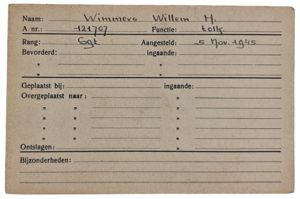 Naam: Wimmers Willem H.
A nr.: 121707 Functie: tolk
Rang: Sgt. Aangesteld: 5 Nov. 1945
Bevorderd: ingaande:
" "
" "
Geplaatst bij: ingaande:
Overgeplaatst naar: "
" " "
" " "
" " "
" " "
Ontslagen: "
Bijzonderheden: